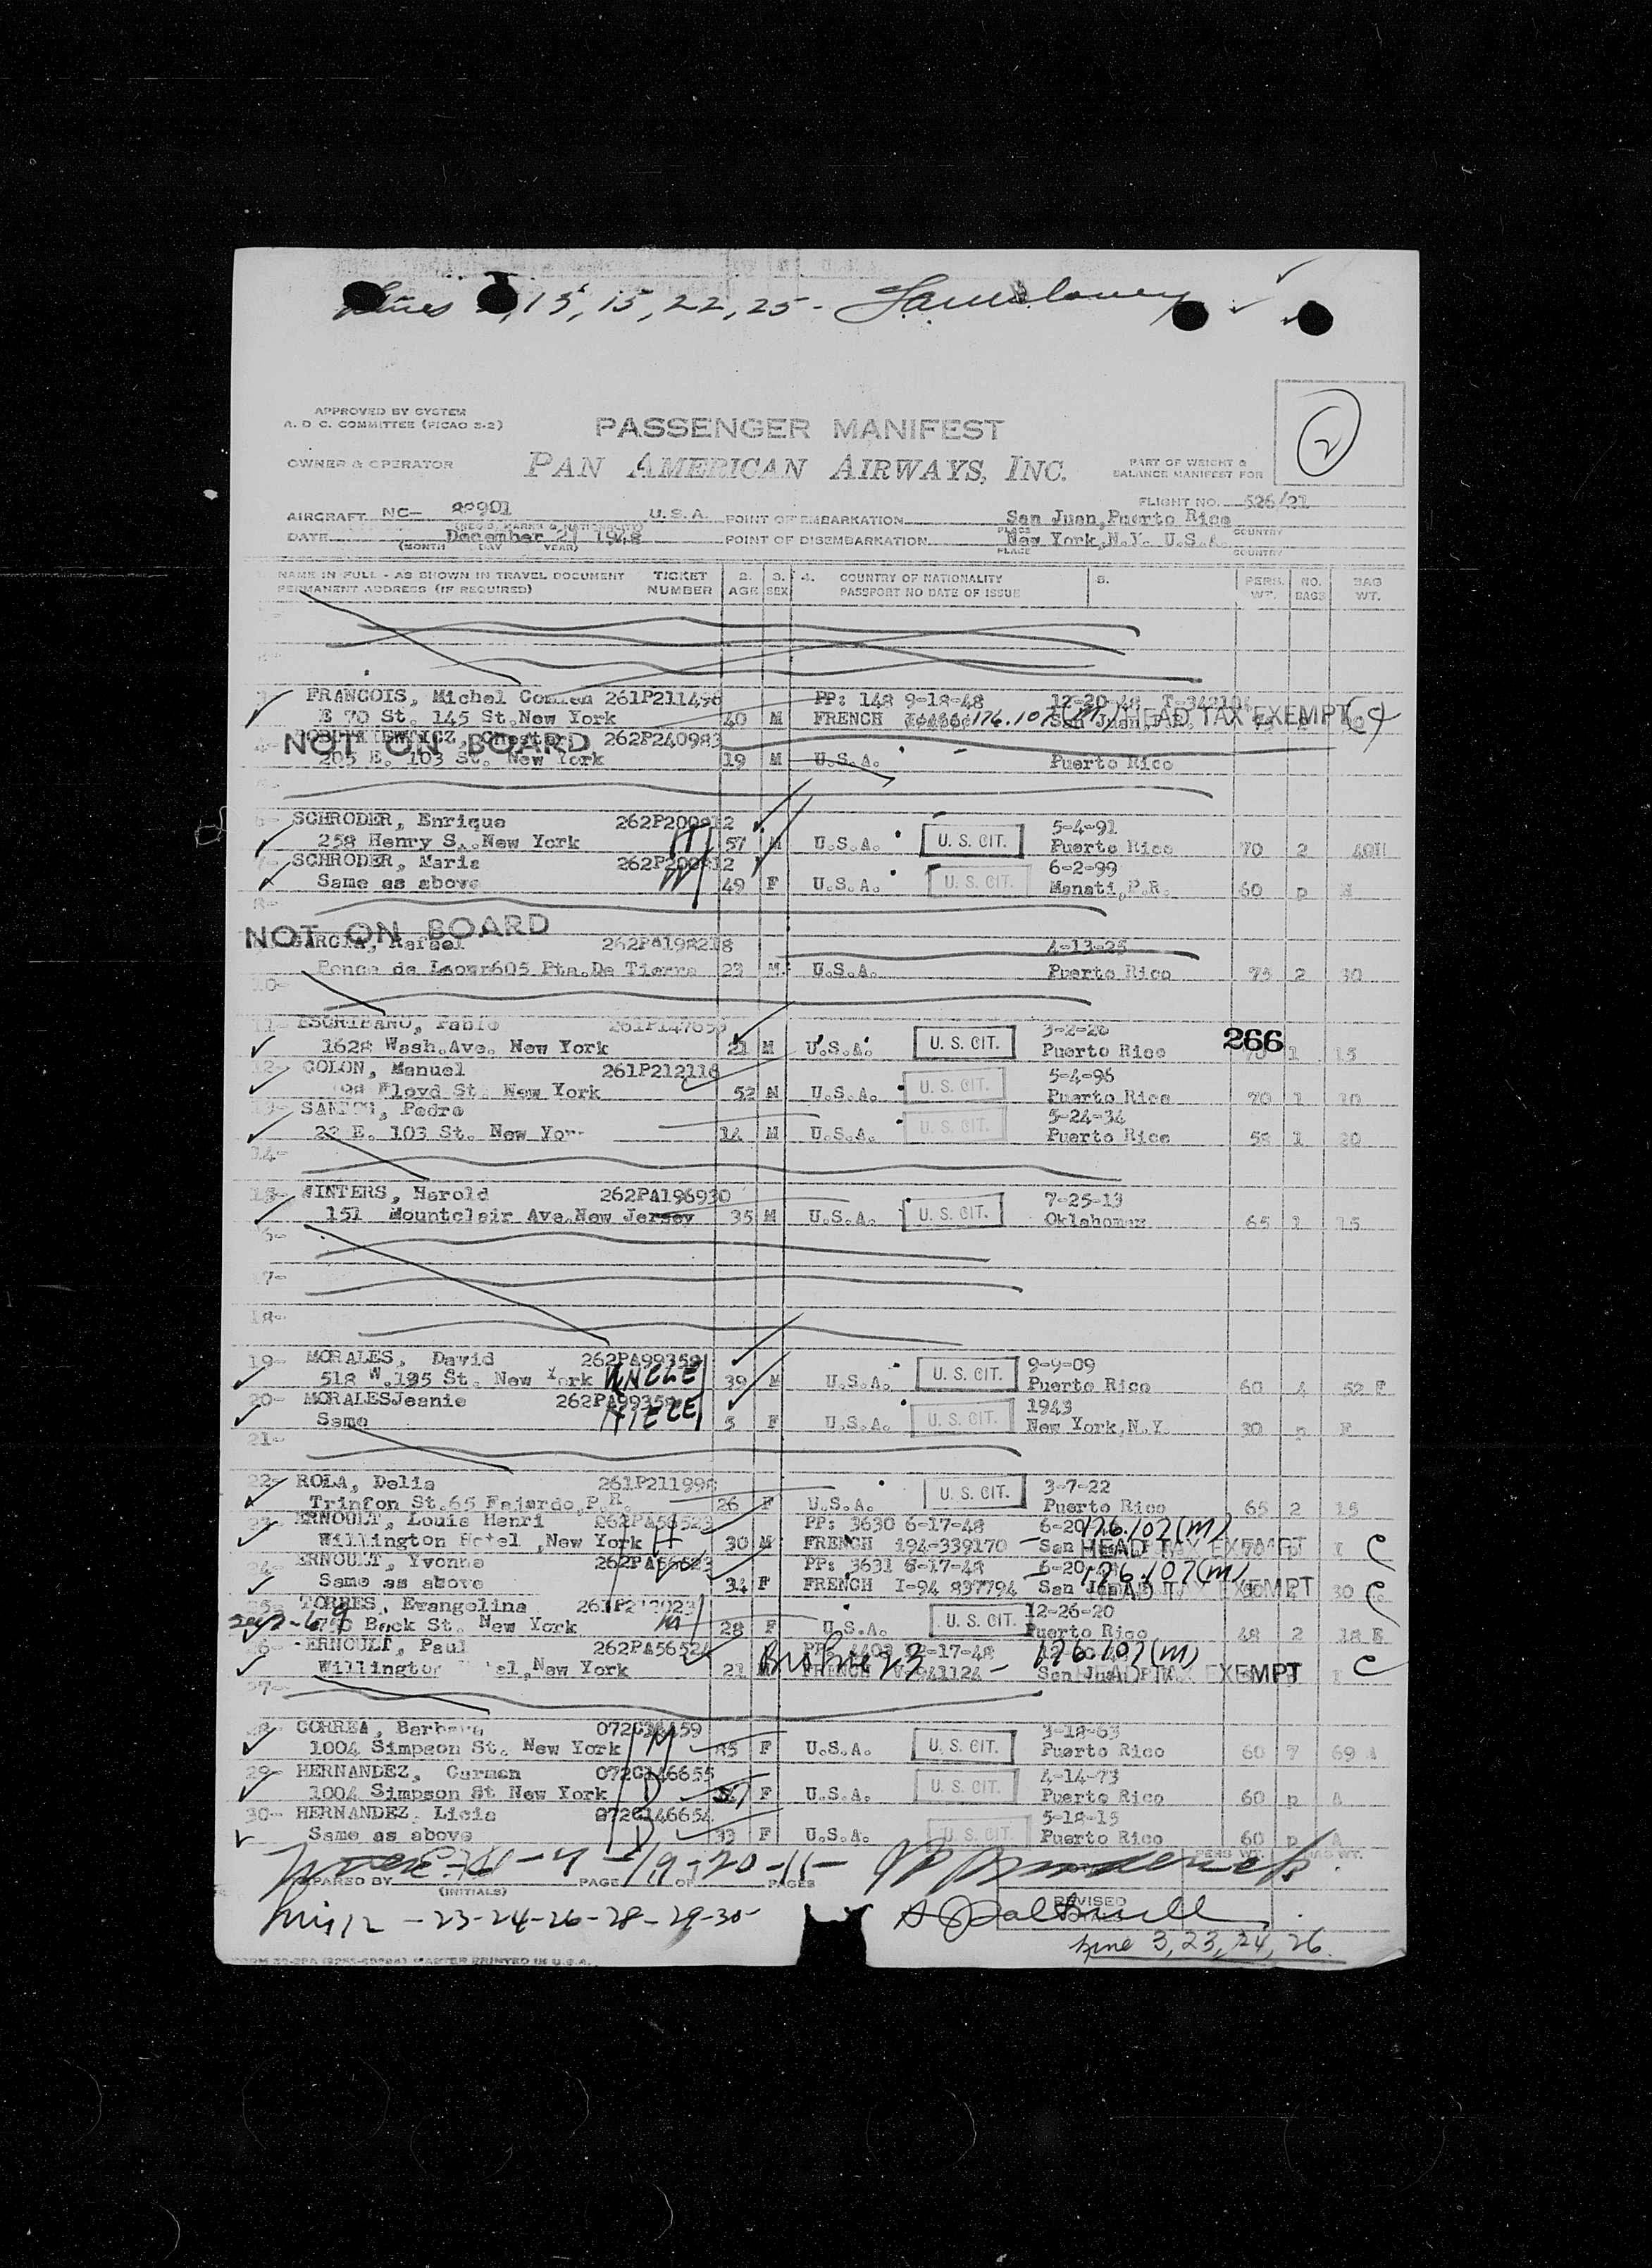 13, 15, 22, 25 -
APPROVED BY SYSTEM
A. D C. COMMITTEE (PICAO S-2)
PASSENGER MANIFEST
2
OWNER & OPERATOR
PAN AMERICAN AIRWAYS, INC.
PART OF WEIGHT &
BALANCE MANIFEST FOR
FLIGHT NO. 526/21
AIRCRAFT NC- 88901 U.S.A. POINT OF EMBARKATION San Juan, Puerto Rico
(REG'S. MARKS & NATIONALITY) PLACE COUNTRY
DATE December 21 1948 POINT OF DISEMBARKATION New York, N.Y. U.S.A.
(MONTH DAY YEAR) PLACE COUNTRY
NAME IN FULL - AS SHOWN IN TRAVEL DOCUMENT TICKET 2. 3. 4. COUNTRY OF NATIONALITY 5. PERS. NO. BAG
PERMANENT ADDRESS (IF REQUIRED) NUMBER AGE SEX PASSPORT NO DATE OF ISSUE WT. BAGS WT.
FRANCOIS, Michel 261P211496 PP: 148 9-18-48 12-20-48
E 70 St. 145 St. New York 40 M FRENCH 176.107(M) San Juan HEAD TAX EXEMPT
NOT ON BOARD
4- 262P240983
205 E. 103 St. New York 19 M U.S.A. Puerto Rico
6- SCHRODER, Enrique 262P200812 5-4-91
258 Henry S. New York 57 M U.S.A. U. S. CIT. Puerto Rico 70 2
7- SCHRODER, Maria 262P200812 6-2-99
Same as above 49 F U.S.A. U. S. CIT. Manati, P.R. 60 p
8-
NOT ON BOARD
GARCIA, Rafael 262PA198218 4-13-25
Ponce de Leon 605 Pta. De Tierra 23 M U.S.A. Puerto Rico 75 2 30
10-
11- ESCRIBANO, Pablo 3-2-28
1628 Wash. Ave. New York 21 M U.S.A. U. S. CIT. Puerto Rico 266 1 15
12- COLON, Manuel 261P212116 5-4-96
Floyd St. New York 52 M U.S.A. U. S. CIT. Puerto Rico 70 1 10
13- SANTOS, Pedro 5-24-34
22 E. 103 St. New York 14 M U.S.A. U. S. CIT. Puerto Rico 58 1 20
14-
15- WINTERS, Harold 262PA196930 7-25-13
151 Mountclair Ave. New Jersey 35 M U.S.A. U. S. CIT. 65 1 15
16-
17-
18-
19- MORALES, David 262PA99359 9-9-09
518 W. 195 St. New York UNCLE 39 M U.S.A. U. S. CIT. Puerto Rico 60 4 52 F
20- MORALES Jeanie 262PA99359 1943
Same NIECE 5 F U.S.A. U. S. CIT. New York, N.Y. 30 p F
21-
22- ROLA, Delia 261P211998 3-7-22
Trinfon St. 65 Fajardo, P.R. 26 F U.S.A. U. S. CIT. Puerto Rico 65 2 15
23- ERNOULT, Louis Henri 262PA56523 PP: 3630 6-17-48 6-20 176.107(M)
Willington Hotel, New York H 30 M FRENCH 194-339170 San HEAD TAX EXEMPT
24- ERNOULT, Yvonne 262PA56523 PP: 3631 6-17-48 6-20 176.107(M)
Same as above W 34 F FRENCH I-94 897794 San HEAD TAX EXEMPT 30
25- TORRES, Evangelina 12-26-20
Beck St. New York 28 F U.S.A. U. S. CIT. Puerto Rico 48 2 18 E
26- ERNOULT, Paul 262PA56524 PP: -17-48 176.107(M)
Willington Hotel, New York 21 M FRENCH San Juan HEAD TAX EXEMPT
27-
28- CORREA, Barbara 3-18-63
1004 Simpson St. New York M 85 F U.S.A. U. S. CIT. Puerto Rico 60 7 69 A
29- HERNANDEZ, Carmen 072C146655 4-14-73
1004 Simpson St New York D F U.S.A. U. S. CIT. Puerto Rico 60 p A
30- HERNANDEZ, Licia 072C146654 5-18-15
Same as above D 33 F U.S.A. U. S. CIT. Puerto Rico 60 p A
19-20-11-
PREPARED BY (INITIALS) PAGE OF PAGES
REVISED
- 23-24-26-28-29-30-
Line 3, 23, 24, 26